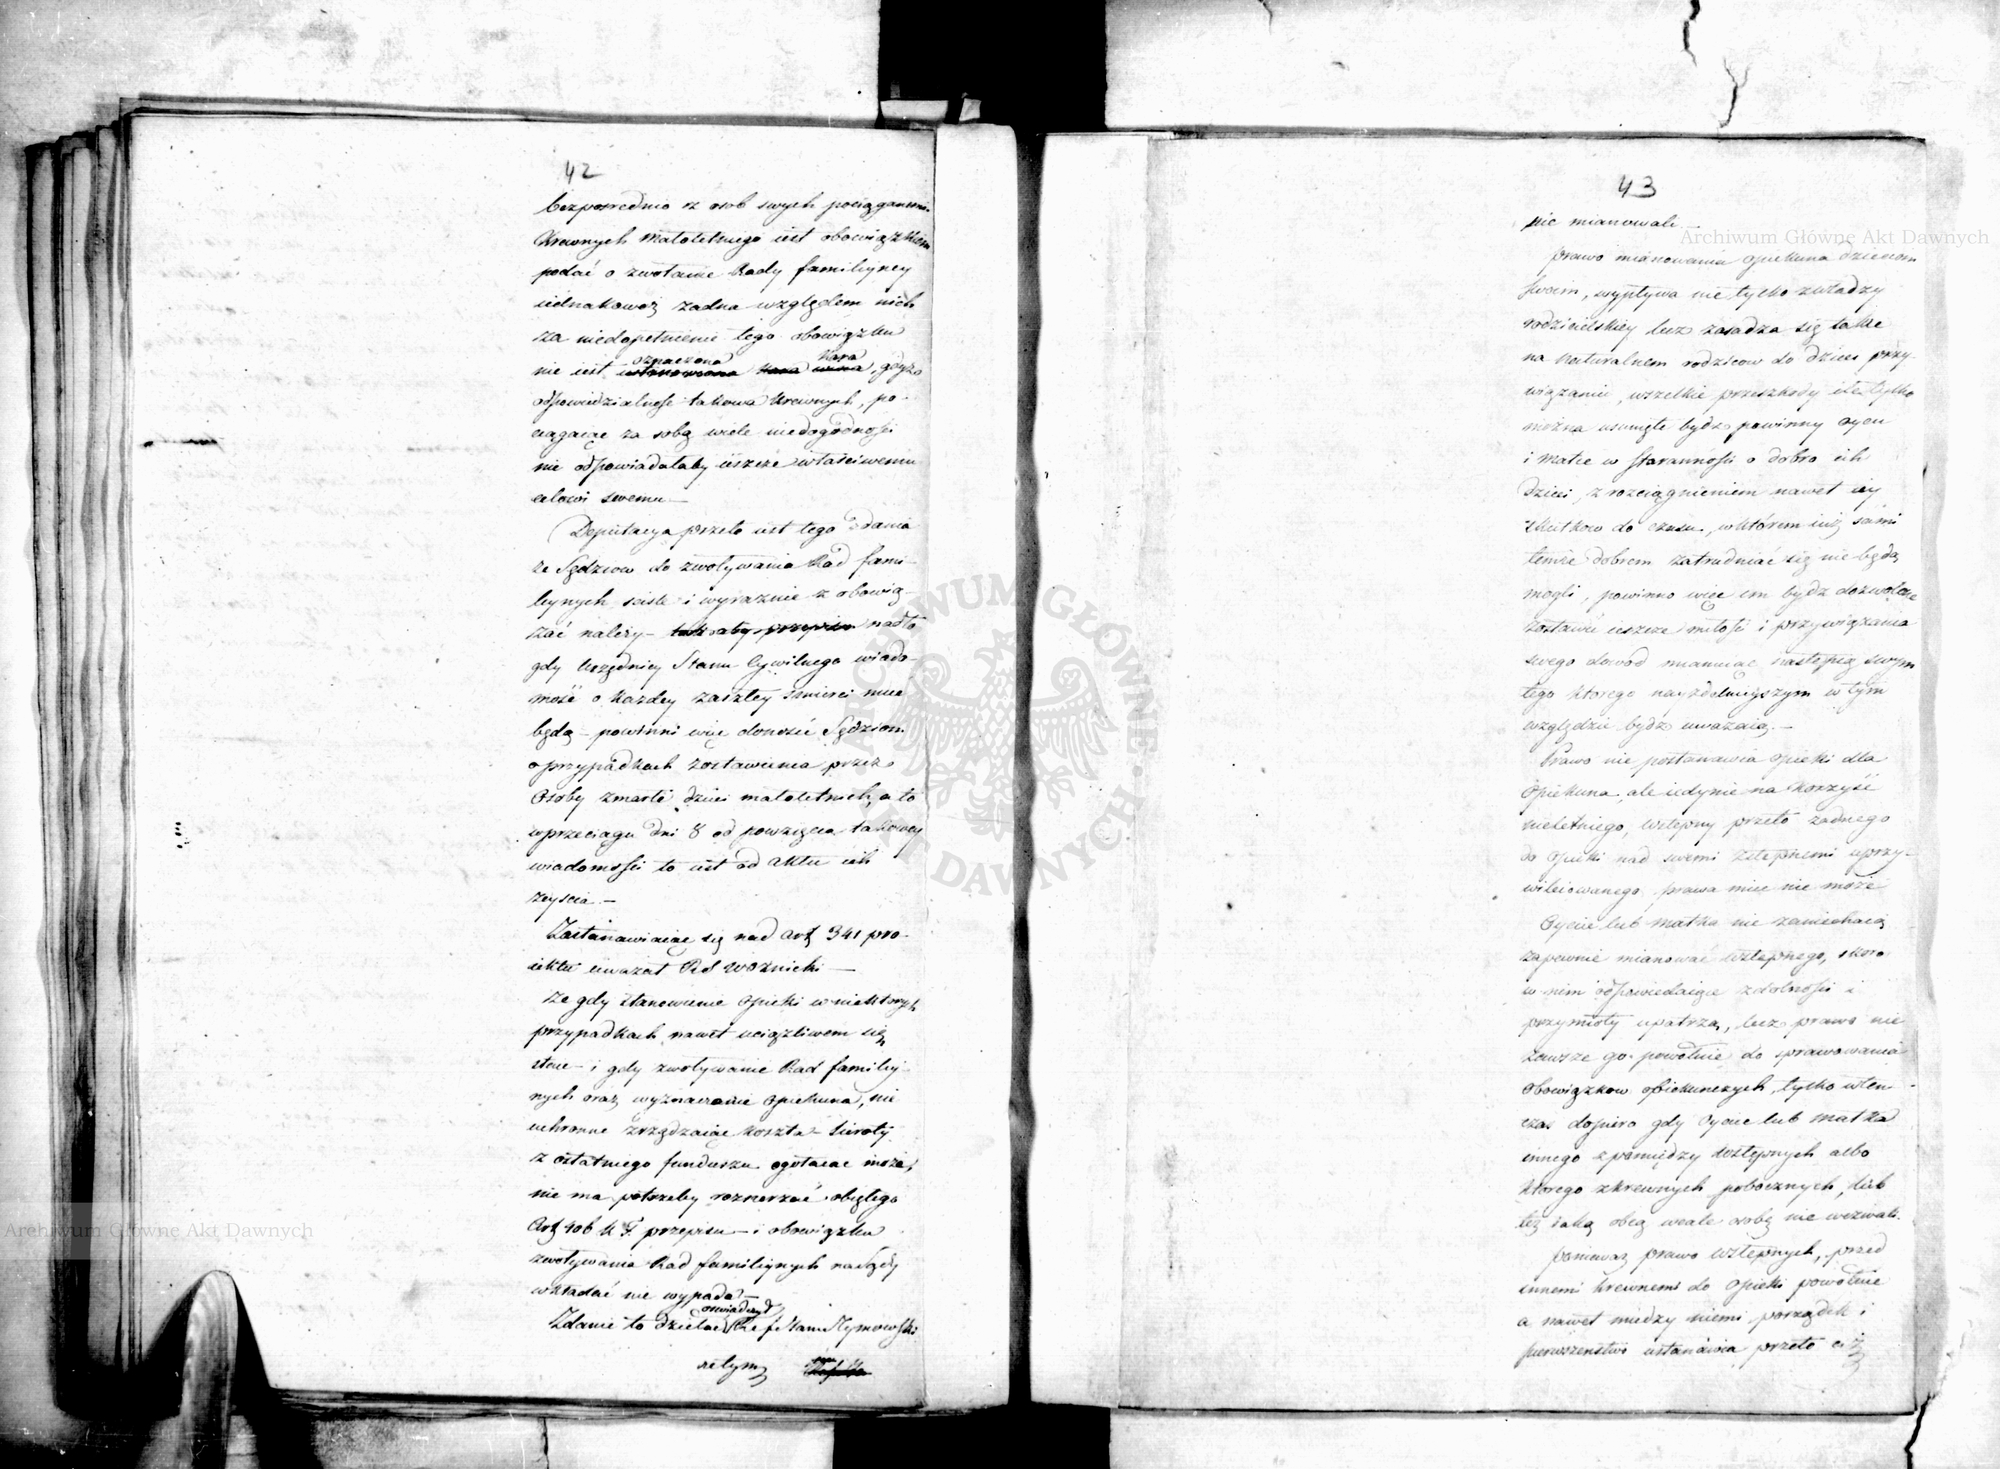 42
bezposrednio z osob swych pociąganemi
Krewnych małoletniego iest obowiązkiem
podać o zwołanie Rady familijney
iednakowoż żadna względem nich
za niedopełnienie tego obowiązku
oznaczona kara
nie iest ustanowiona kara wina, gdyż
odpowiedzialność takowa Krewnych, po-
ciągaiąc za sobą wiele niedogodności
nie odpowiadałaby ieszcze właściwemu
celowi swemu —
Deputacya przeto iest tego zdania
że Sędziow do zwoływania Rad fami-
liynych scisle i wyraznie z obowią-
zać należy — nadto
gdy Urzędnicy Stanu Cywilnego wiado-
mość o każdey zaszłey śmierci mieć
będą — powinni więc donosić Sędziom
o przypadkach zostawienia przez
Osoby zmarłe dzieci małoletnich, a to
w przeciągu dni 8 od powzięcia takowey
wiadomości to iest od aktu ich
zeyscia. —
Zastanawiaiąc się nad Art 341 pro-
iektu uważał Rd Woźnicki —
że gdy stanowienie opieki w niektorych
przypadkach nawet uciążliwem się
staie — i gdy zwoływanie Rad familiy-
nych oraz wyznaczanie opiekuna, nie
uchronne zrządzaiąc koszta — Sieroty
z ostatniego funduszu ogołacać może,
nie ma potrzeby rozszerzać obiętego
Art 406 K F przepisu — i obowiązku
zwoływania Rad familiynych na Sędzy
wkładać nie wypada —
oswiadczył
Zdanie to dzieląc Ref Stanu Rymowski
że tym
43
nie mianowali —
Prawo mianowania opiekuna dzieciom
swoim, wypływa nie tylko z władzy
rodzicielskiey lecz zasadza się także
na naturalnem rodzicow do dzieci przy-
wiązaniu, wszelkie przeszkody ile tylko
można usunięte bydz powinny oycu
i matce w staranności o dobro ich
dzieci z rozciągnieniem nawet iey
skutkow do czasu, w którem iuż sami
temże dobrem zatrudniać się nie będą
mogli, powinno więc im bydz dozwolone
zostawić ieszcze miłości i przywiązania
swego dowod mianuiąc następcą swym
tego ktorego nayzdolnieyszym w tym
względzie bydź uważaią. —
Prawo nie postanawia opieki dla
Opiekuna, ale iedynie na korzyść
nieletniego, wstępny przeto żadnego
do opieki nad swemi zstępnemi uprzy-
wileiowanego prawa mieć nie może
Oyciec lub matka nie zaniechaią
zapewnie mianować wstępnego, skoro
w nim odpowiedaiące zdolności i
przymioty upatrzą, lecz prawo nie
zawsze go powołuie do sprawowania
obowiązkow opiekunczych, tylko wten-
czas dopiero gdy Oyciec lub matka
innego z pomiędzy wstępnych albo
ktorego z krewnych pobocznych, lub
też iaką obcą wcale osobę nie wezwali.
Ponieważ prawo wstępnych, przed
innemi krewnemi do opieki powołuie
a nawet między niemi porządek i
pierwszenstwo ustanawia przeto ciż